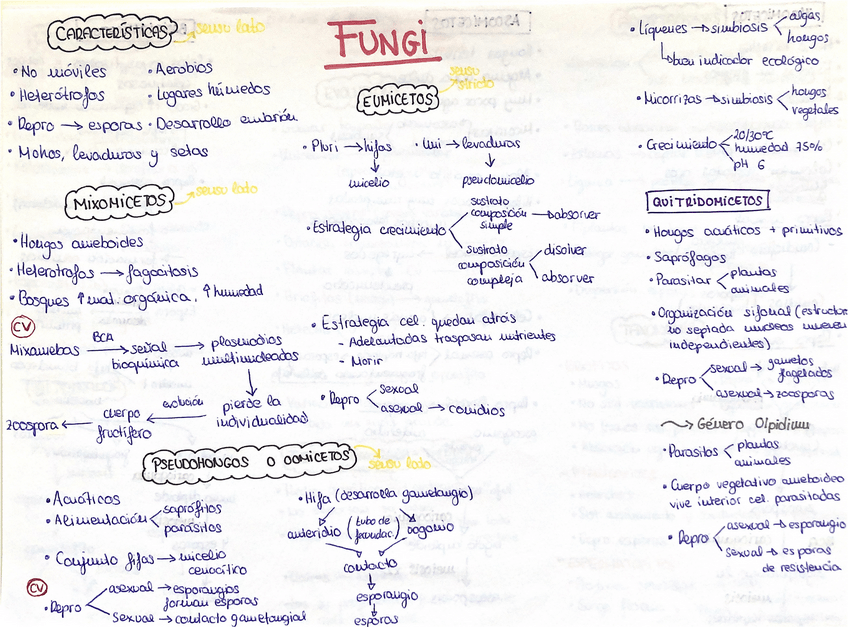 FUNGI
CARACTERÍSTICAS → sensu lato
• No móviles
• Heterótrofos
• Repro → esporas
• Mohos, levaduras y setas
• Aerobios
• Lugares húmedos
• Desarrollo embrión
MIXOMICETOS → sensu lato
• Hongos ameboides
• Heterotrofos → fagocitosis
• Bosques ↑ mat. orgánica, ↑ humedad
CV
Mixamebas BCA → señal bioquímica → plasmodios multinucleados
↓
pierde la individualidad
evolución ← cuerpo fructífero
← zoospora
PSEUDOHONGOS O OOMICETOS → sensu lato
• Acuáticos
• Alimentación < saprófitos
parásitos
• Conjunto fijas → micelio
cenocítico
CV
• Repro < asexual → esporangios
forman esporas
sexual → contacto gametangial
• Hifa (desarrolla gametangio)
anteridio (tubo de fecundac.) oogonio
contacto
↓
esporangio
↓
esporas
EUMICETOS sensu stricto
• Pluri → hifas • Uni → levaduras
↓ ↓
micelio pseudomicelio
• Estrategia crecimiento < sustrato
composición simple → absorver
sustrato
composición compleja < disolver
absorver
• Estrategia cel. quedan atrás
- Adelantadas traspasan nutrientes
- Morir
• Repro < sexual
asexual → conidios
• Líquenes → simbiosis < algas
hongos
↳ buen indicador ecológico
• Micorrizas → simbiosis < hongos
vegetales
• Crecimiento < 20/30ºC
humedad 75%
pH 6
QUITRIDOMICETOS
• Hongos acuáticos + primitivos
• Saprófagos
• Parasitar < plantas
animales
• Organización sifonal (estructor
no septada nucleos mueven
independientes)
• Repro < sexual → gametos
flagelados
asexual → zoosporas
→ Género Olpidium
• Parásitos < plantas
animales
• Cuerpo vegetativo ameboideo
vive interior cel. parasitadas
• Repro < asexual → esporangio
sexual → esporas
de resistencia